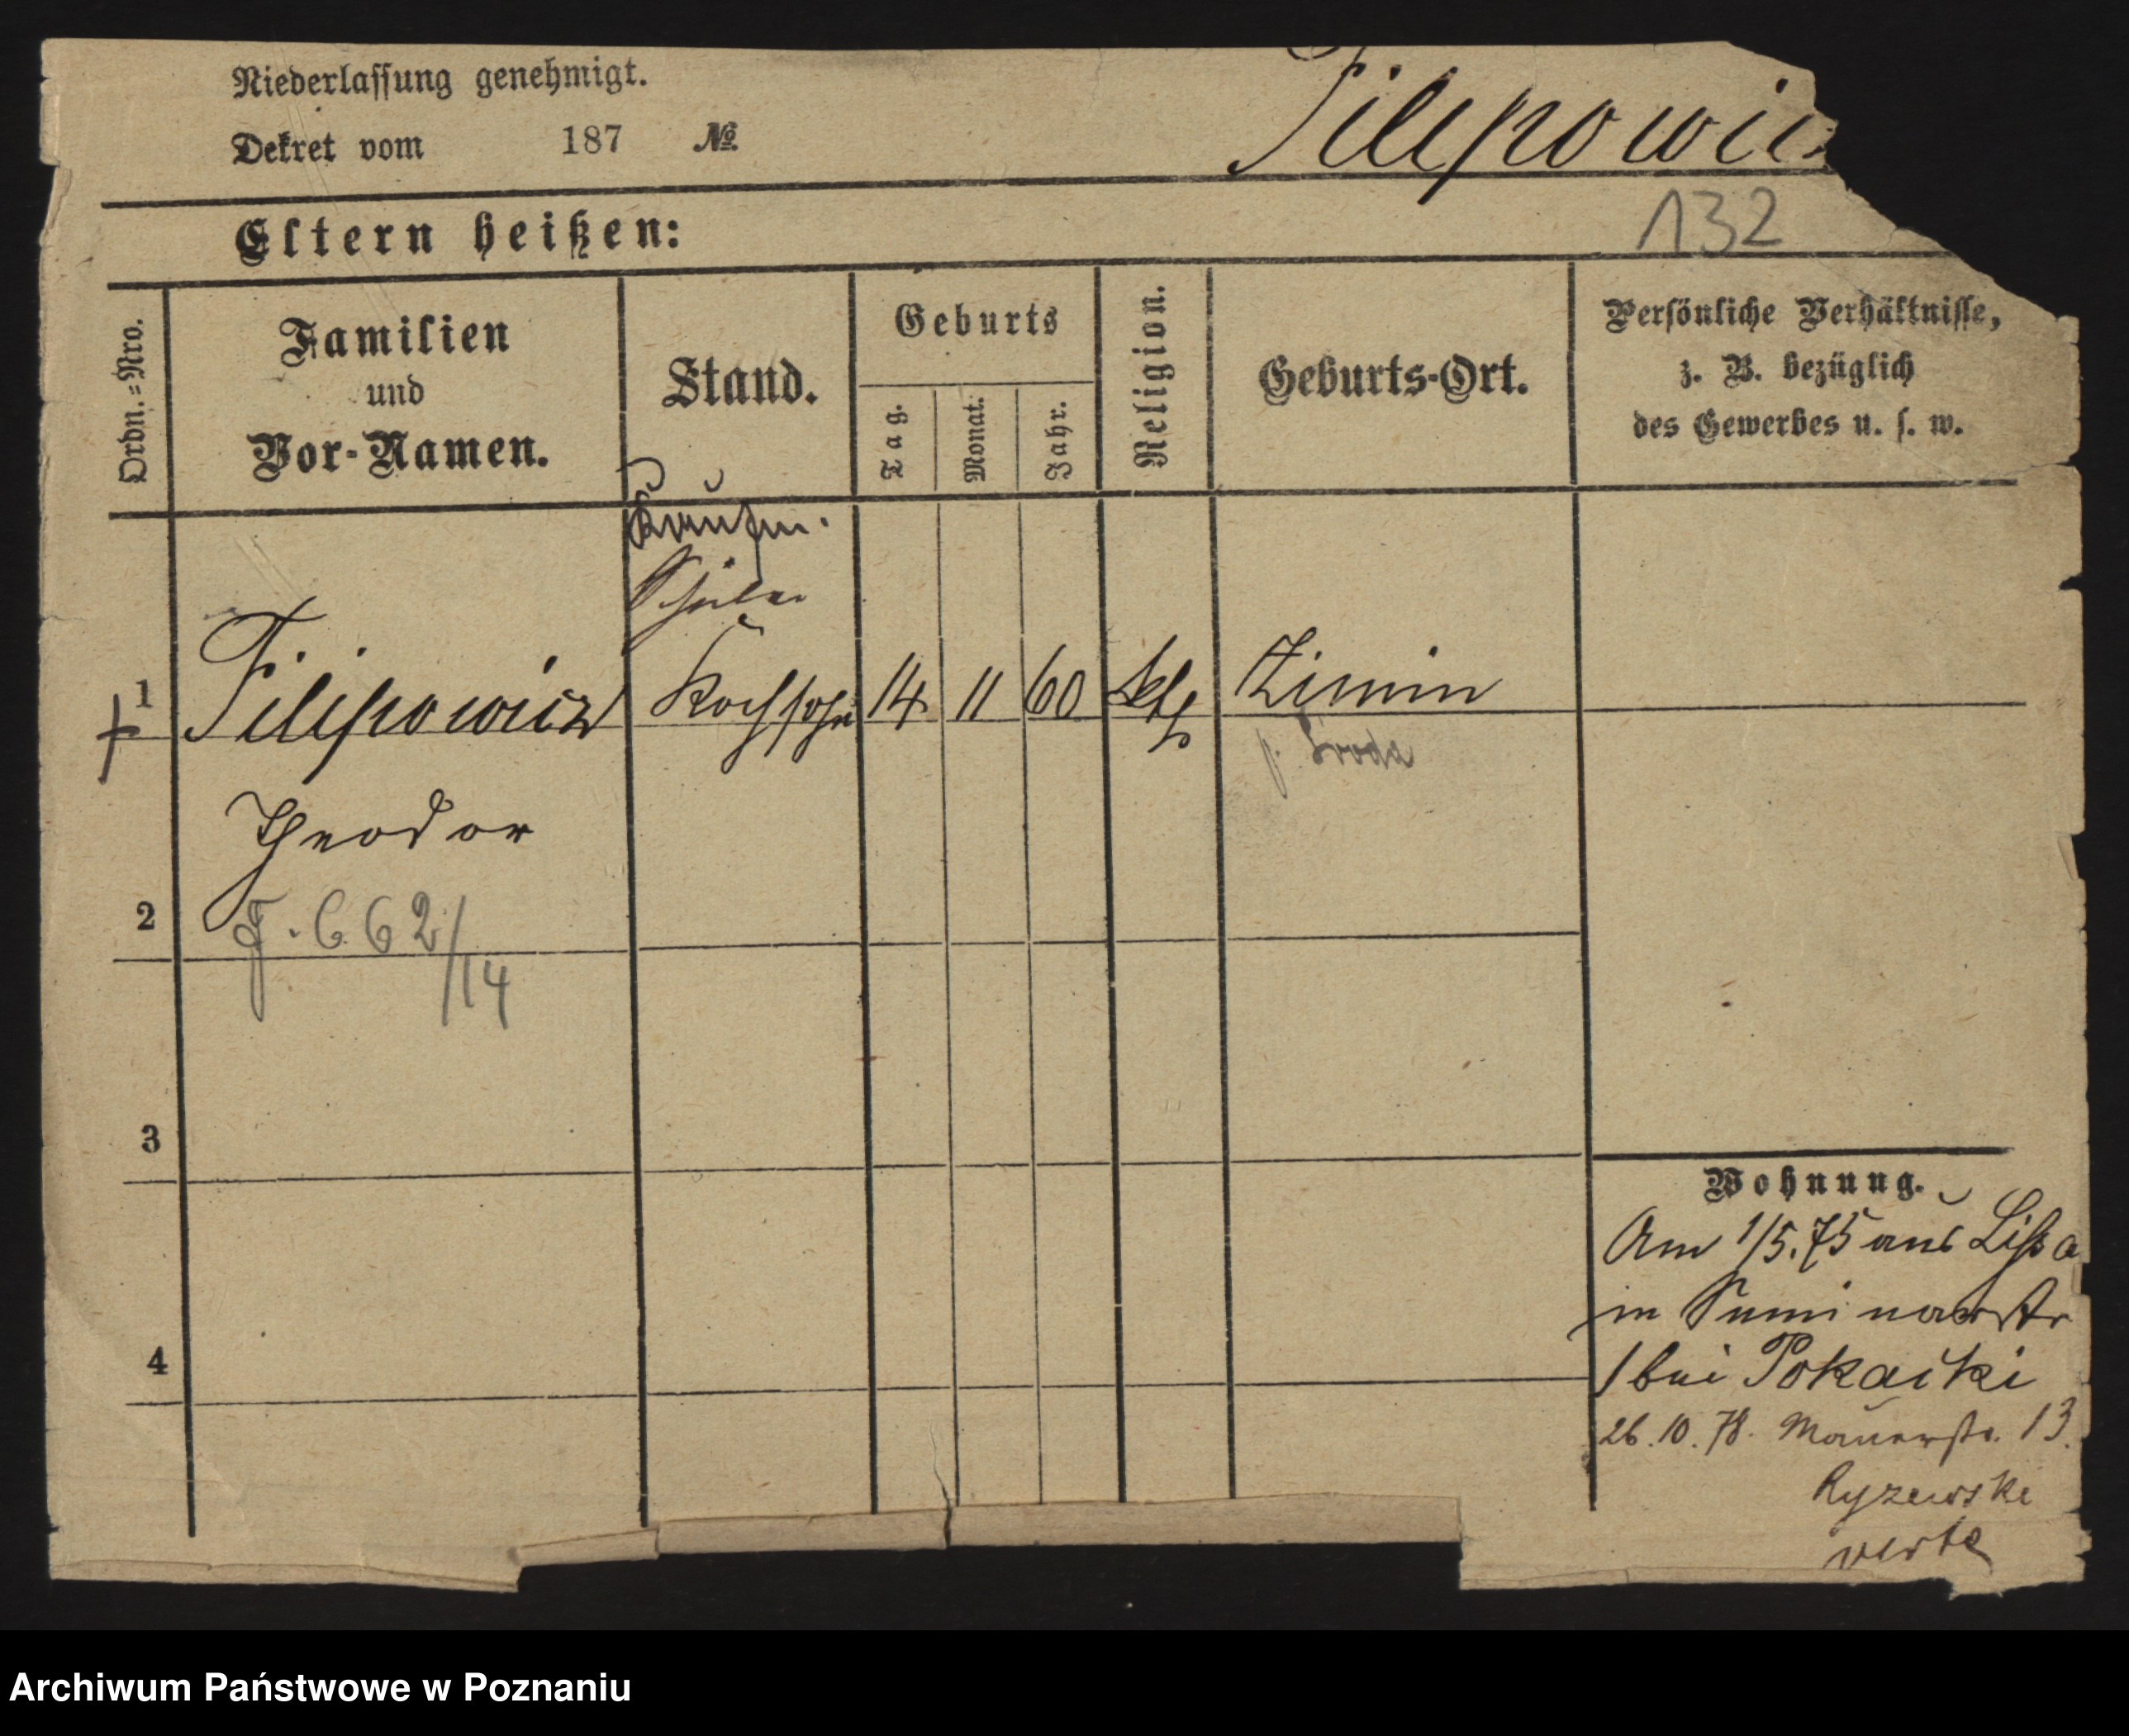 Niederlassung genehmigt.
Dekret vom 187 №
Filipowic
132
Eltern heißen:
Ordn.=Nro.
Familien
und
Vor-Namen.
Stand.
Geburts
Tag.
Monat.
Jahr.
Religion.
Geburts-Ort.
Persönliche Verhältnisse,
z. B. bezüglich
des Gewerbes u. s. w.
Kaufm.
Schüler
1 Filipowicz Kochsohn 14 11 60 kth Zimin
p. Sroda
Theodor
2
F. 662/14
3
4
Wohnung.
Am 1/5.75 aus Lissa
in Seminarstr
1 bei Pokaicki
26.10.78. Mauerstr. 13.
Ryzewski
verte
Archiwum Państwowe w Poznaniu